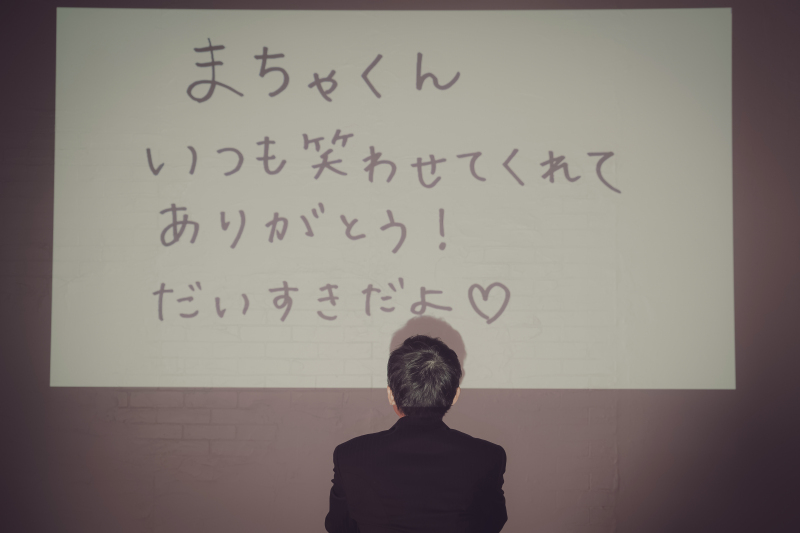 まちゃくん
いつも笑わせてくれて
ありがとう!
だいすきだよ♡